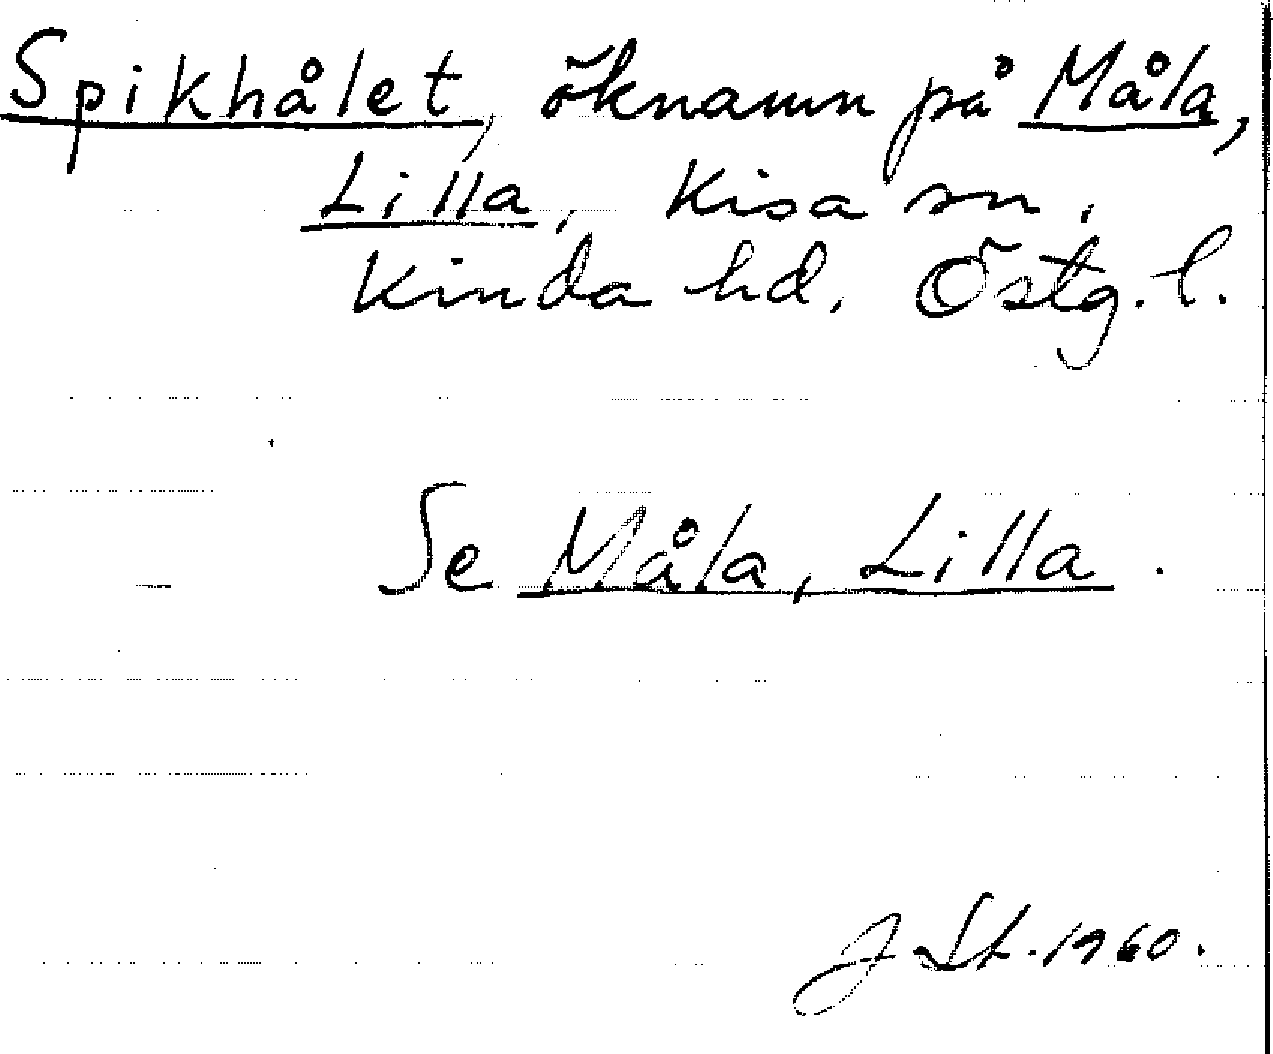 Spikhålet, öknamn på Måla,
Lilla, Kisa sn,
Kinda hd, Östg. l.
Se Måla, Lilla.
J St. 1960.